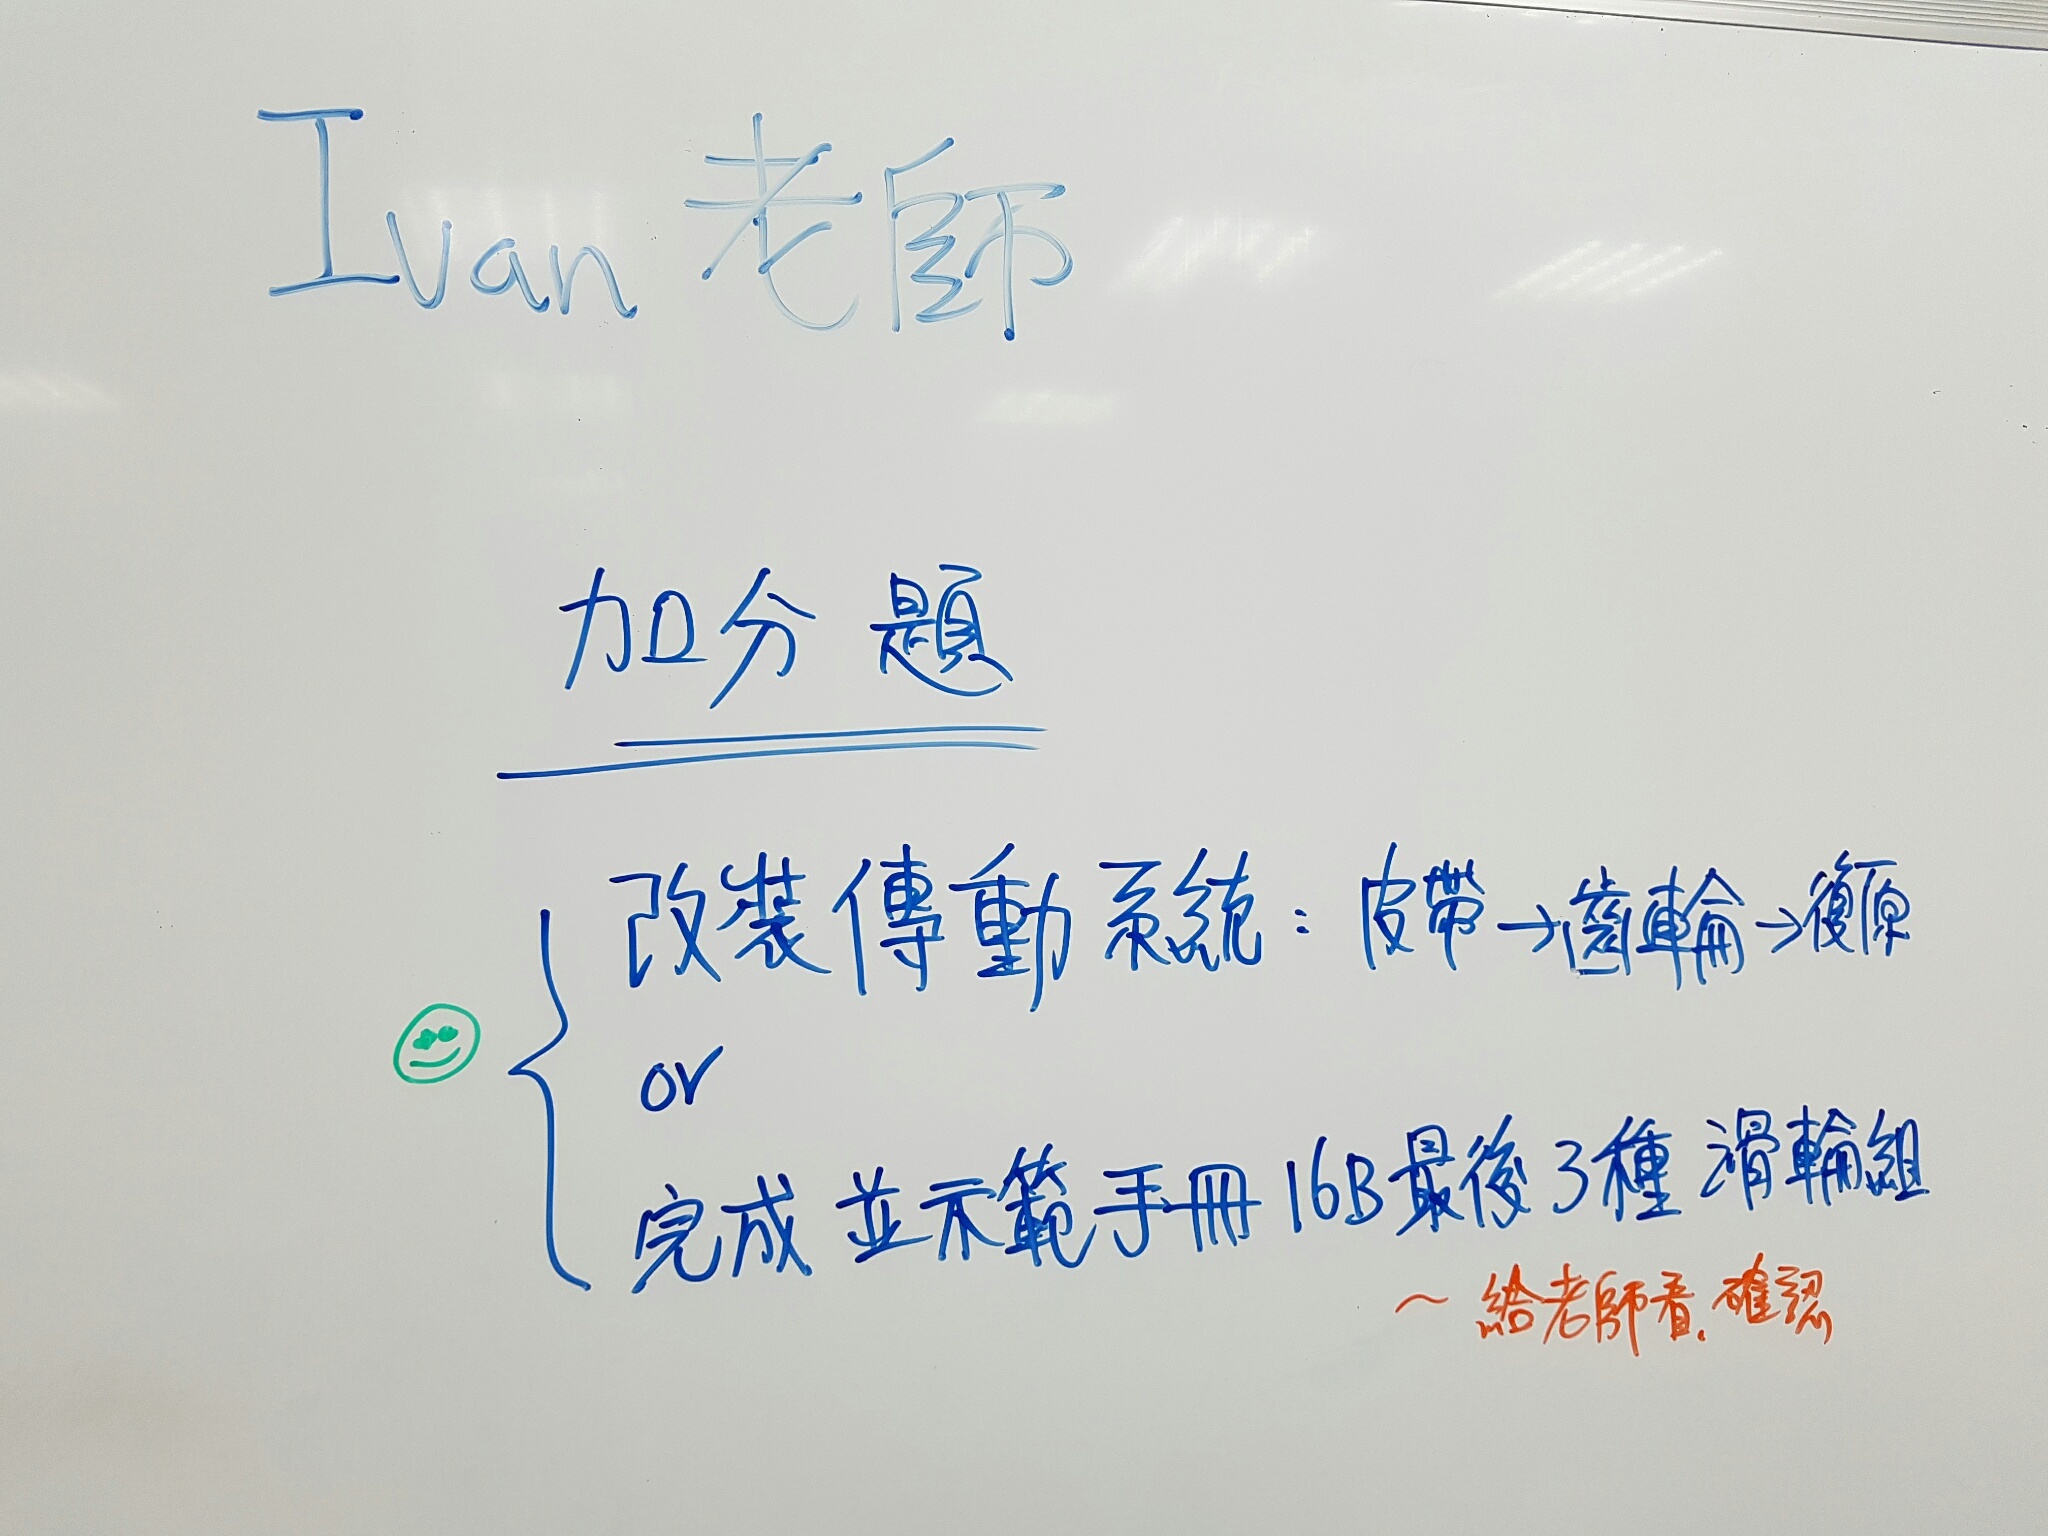 Ivan 老師
加分題
改裝傳動系統：皮帶→齒輪→復原
or
完成並示範手冊16B最後3種滑輪組
~給老師看.確認